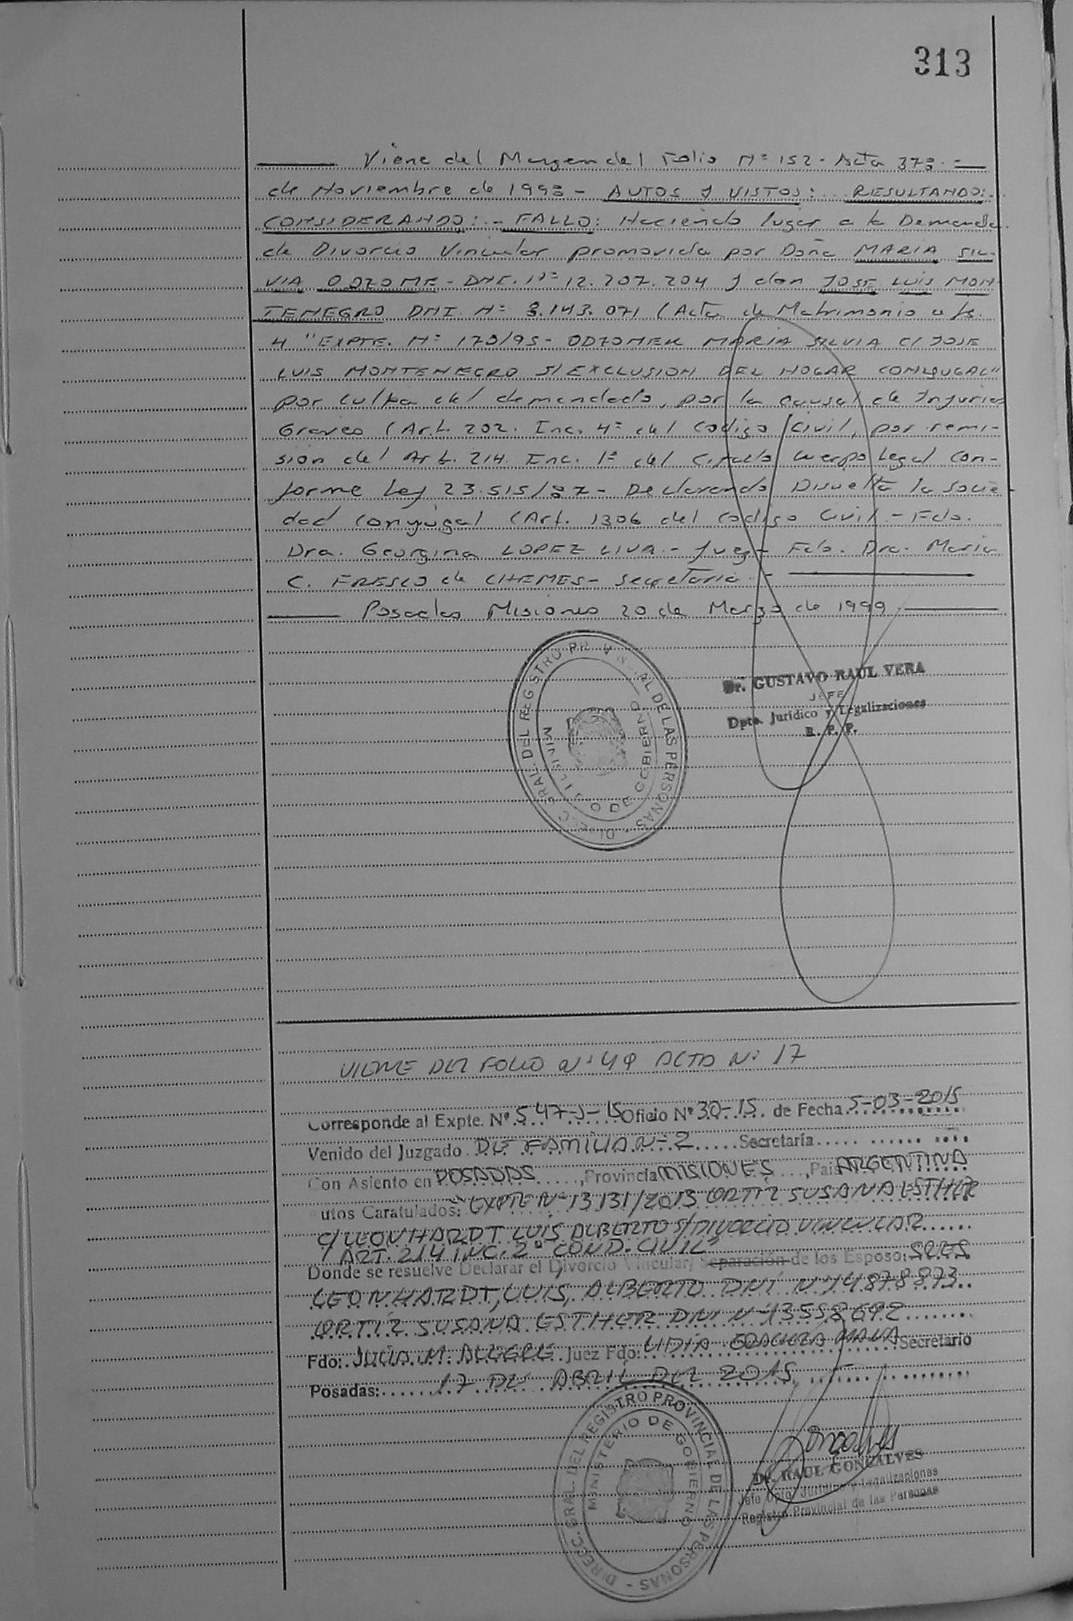 313
Viene del Margen del Folio Nº 152 - Acta 373 -
de Noviembre de 1995 - AUTOS Y VISTOS: RESULTANDO:
CONSIDERANDO: - FALLO: Haciendo lugar a la Demanda
de Divorcio Vincular promovida por Doña MARIA SIL-
VIA ODZOMEK - DNI. Nº 12.207.204 y don JOSE LUIS MON
TENEGRO DNI. Nº 8.143.071 (Acta de Matrimonio a fs.
4 "EXPTE. Nº 170/95 - ODZOMEK MARIA SILVIA C/ JOSE
LUIS MONTENEGRO S/ EXCLUSION DEL HOGAR CONYUGAL"
por culpa del demandado, por la causal de Injurias
Graves (Art. 202. Inc. 4º del Codigo Civil, por remi-
sion del Art. 214. Inc. 1º del Citado Cuerpo Legal con-
forme Ley 23.515/87 - Declarando Disuelta la Socie
dad Conyugal (Art. 1306 del Codigo Civil - Fdo.
Dra. Georgina LOPEZ LIVA - Juez - Fdo. Dra. Maria
C. FRESCO de CHEMES - Secretaria -
Posadas Misiones 20 de Marzo de 1999.
DIRECC. GRAL. DEL REGISTRO PROVINCIAL DE LAS PERSONAS
GOBIERNO
Dr. GUSTAVO RAUL VERA
JEFE
Dpto. Jurídico y Legalizaciones
R. P. P.
VIENE DEL FOLIO Nº 49 ACTA Nº 17
Corresponde al Expte. Nº 547-J-15 Oficio Nº 30-15 de Fecha 5-03-2015
Venido del Juzgado DE FAMILIA Nº 2 Secretaría
Con Asiento en POSADAS, Provincia MISIONES, País ARGENTINA
utos Caratulados: "EXPTE Nº 13131/2013 ORTIZ SUSANA ESTHER
C/ LEONHARDT LUIS ALBERTO S/ DIVORCIO VINCULAR
ART. 214 INC. 2º COND. CIVIL"
Donde se resuelve Declarar el Divorcio Vincular/ Separación de los Esposo: SRES
LEONHARDT, LUIS, ALBERTO DNI Nº 14878873
ORTIZ SUSANA ESTHER DNI Nº 13558692
Fdo: JULIA M. ALEGRE Juez Fdo: LIDIA Secretario
Posadas: 17 DE ABRIL DEL 2015
DIRECC. GRAL. DEL REGISTRO PROVINCIAL DE LAS PERSONAS
MINISTERIO DE GOBIERNO
Dr. RAUL GONZALVES
Jefe Dpto. Jurídico y Legalizaciones
Registro Provincial de las Personas